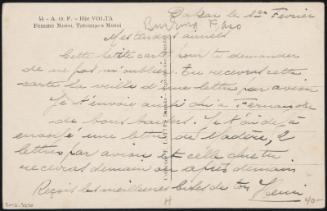 54 - A. O. F. - Hte VOLTA
Femme Mossi, Tatouages Mossi
Dakar le 1er Février
Burkina Faso
Cette petite carte pour te demander
de ne pas m'oublier. Tu recevras cette
carte la veille d'une lettre par avion
Je t'envoie aussi
de bons baisers. Je t'ai déjà
envoyé une lettre de Madère, 2
lettres par avion et celle que tu
recevras demain ou après demain
Reçois les meilleures bises de ton
Henri
40-